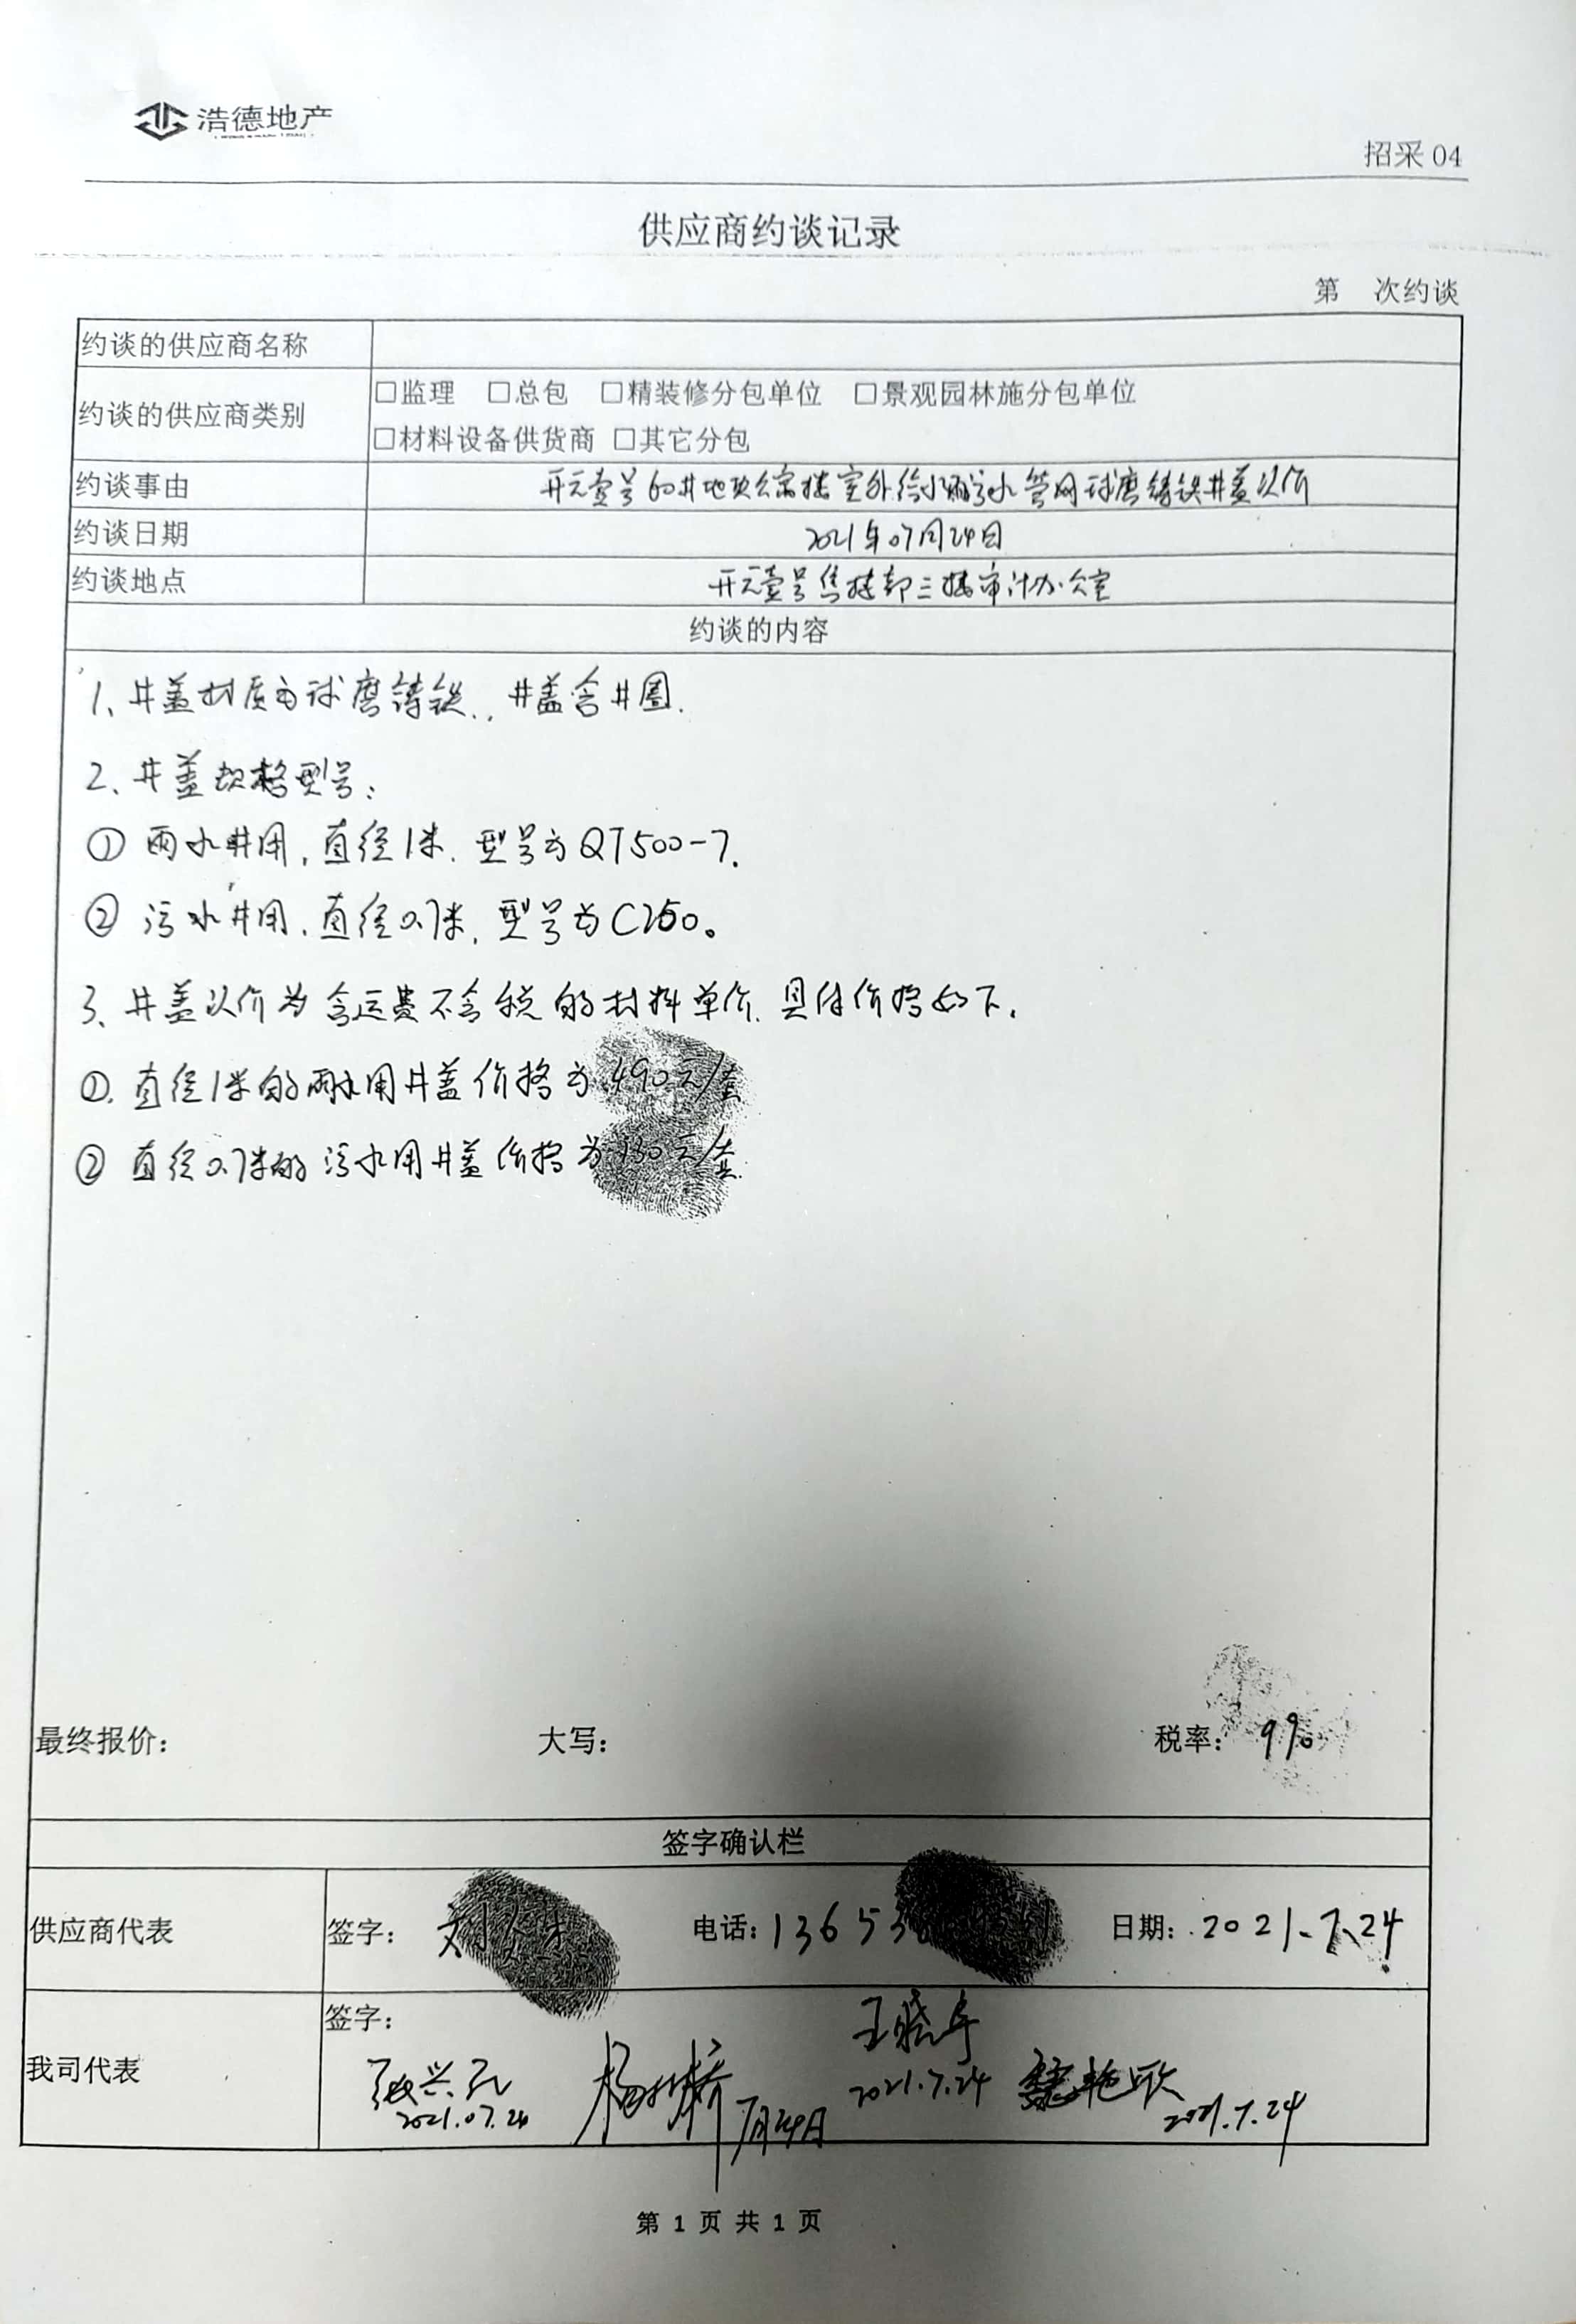 浩德地产
招采 04
供应商约谈记录
第 次约谈
约谈的供应商名称
约谈的供应商类别
□监理 □总包 □精装修分包单位 □景观园林施分包单位
□材料设备供货商 □其它分包
约谈事由 开元壹号60井地块公寓楼室外给水雨污水管网球磨铸铁井盖认价
约谈日期 2021年07月24日
约谈地点 开元壹号售楼部三楼审计办公室
约谈的内容
1、井盖材质为球磨铸铁.,井盖含井圈.
2、井盖规格型号:
① 雨水井用,直径1米.型号为QT500-7.
② 污水井用,直径0.7米,型号为C250。
3、井盖认价为含运费不含税的材料单价.具体价格如下.
①.直径1米的雨水用井盖价格为490元/套
② 直径0.7米的污水用井盖价格为130元/套.
最终报价: 大写: 税率: 9%
签字确认栏
供应商代表 签字: 电话: 日期: 2021.7.24
签字:
我司代表
王晓宇
2021.7.24
2021.07.24
7月24日
魏艳欣
2021.7.24
第 1 页 共 1 页